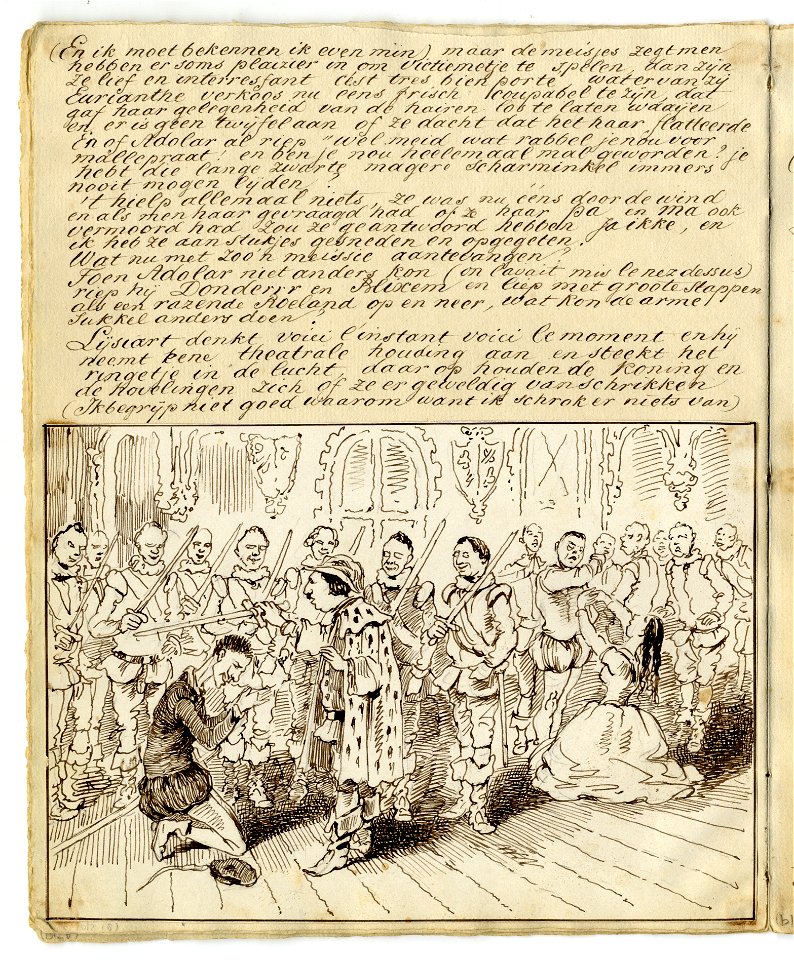 (En ik moet bekennen ik even min) maar de meisjes zegt men
hebben er soms plaizier in om victiemetje te spelen dan zijn
ze lief en interressant c'est tres bien porté water van zij
Eurianthe verkoos nu eens frisch koupabel te zijn, dat
gaf haar gelegenheid van de hairen los te laten waaijen
en er is geen twijfel aan of ze dacht dat het haar flatteerde
En of Adolar al riep "wel meid wat rabbel je nou voor
mallepraat! en ben je nou heelemaal mal geworden? je
hebt die lange zwarte magere scharminkel immers
nooit mogen lijden!
't hielp allemaal niets, ze was nu ééns door de wind
en als men haar gevraagd had of ze haar pa en ma ook
vermoord had zou ze geantwoord hebben Ja ikke, en
ik heb ze aan stukjes gesneden en opgegeten!
Wat nu met zoo'n meissie aantevangen?
Toen Adolar niet anders kon (on l'avait mis le nez dessus)
riep hij Donderrr en Blixem en liep met groote stappen
als een razende Roeland op en neer, wat kon de arme
sukkel anders doen?
Lysiart denkt voici l'instant voici le moment en hij
neemt eene theatrale houding aan en steekt het
ringetje in de lucht, daar op houden de koning en
de hovelingen zich of ze er geweldig van schrikken
(Ik begrijp niet goed waarom want ik schrok er niets van)